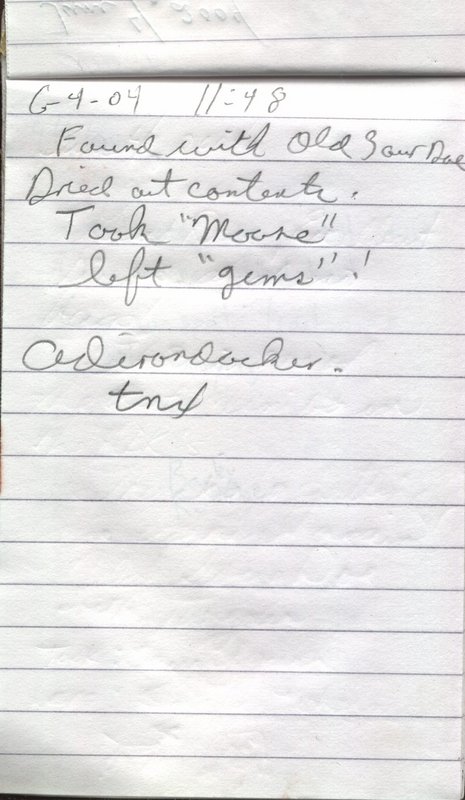 6-4-04 11:48
Found with Old Sour
Dried out contents.
Took "Moose"
left "gems"!
Adirondacker.
tnx